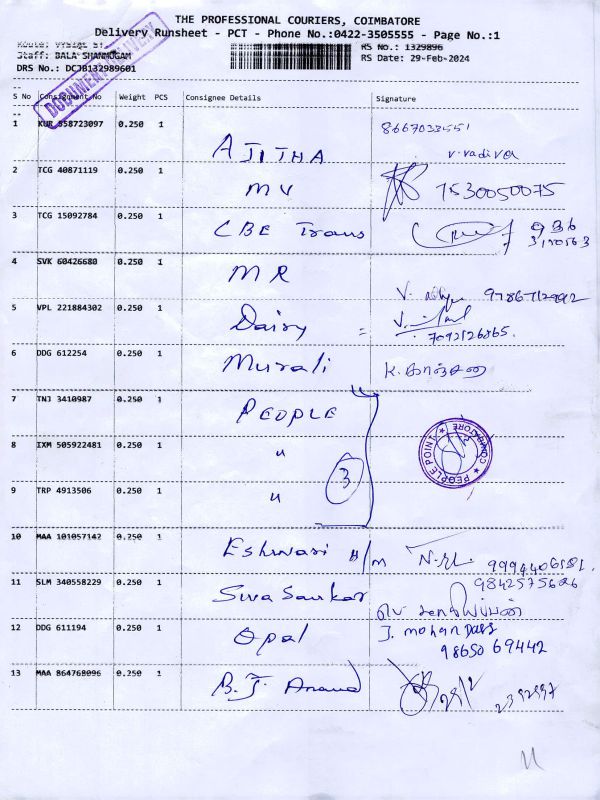 THE PROFESSIONAL COURIERS, COIMBATORE
Delivery Runsheet - PCT - Phone No.:0422-3505555 - Page No.:1
Staff: BALA SHANMUGAM
RS No.: 1329896
DRS No.: DCJB132989601
RS Date: 29-Feb-2024
DOCUMENT DELIVERY
S No Consignment No Weight PCS Consignee Details Signature
1 KUR 558723097 0.250 1 AJITHA 8667033551
V. Vadivel
2 TCG 40871119 0.250 1 MV 7530050075
3 TCG 15092784 0.250 1 CBE Trans
4 SVK 60426680 0.250 1 MR
5 VPL 221884302 0.250 1 Daisy =
7092126865.
6 DDG 612254 0.250 1 Murali
7 TNJ 3410987 0.250 1 PEOPLE
8 IXM 505922481 0.250 1 "
3
PEOPLE POINT ★ COIMBATORE ★
9 TRP 4913506 0.250 1 "
10 MAA 101057142 0.250 1 Eshwari H/m
11 SLM 340558229 0.250 1 Siva Sankar 9842575626
12 DDG 611194 0.250 1 Opal J. mohan Dass
98650 69442
13 MAA 864768096 0.250 1 B. J. Anand